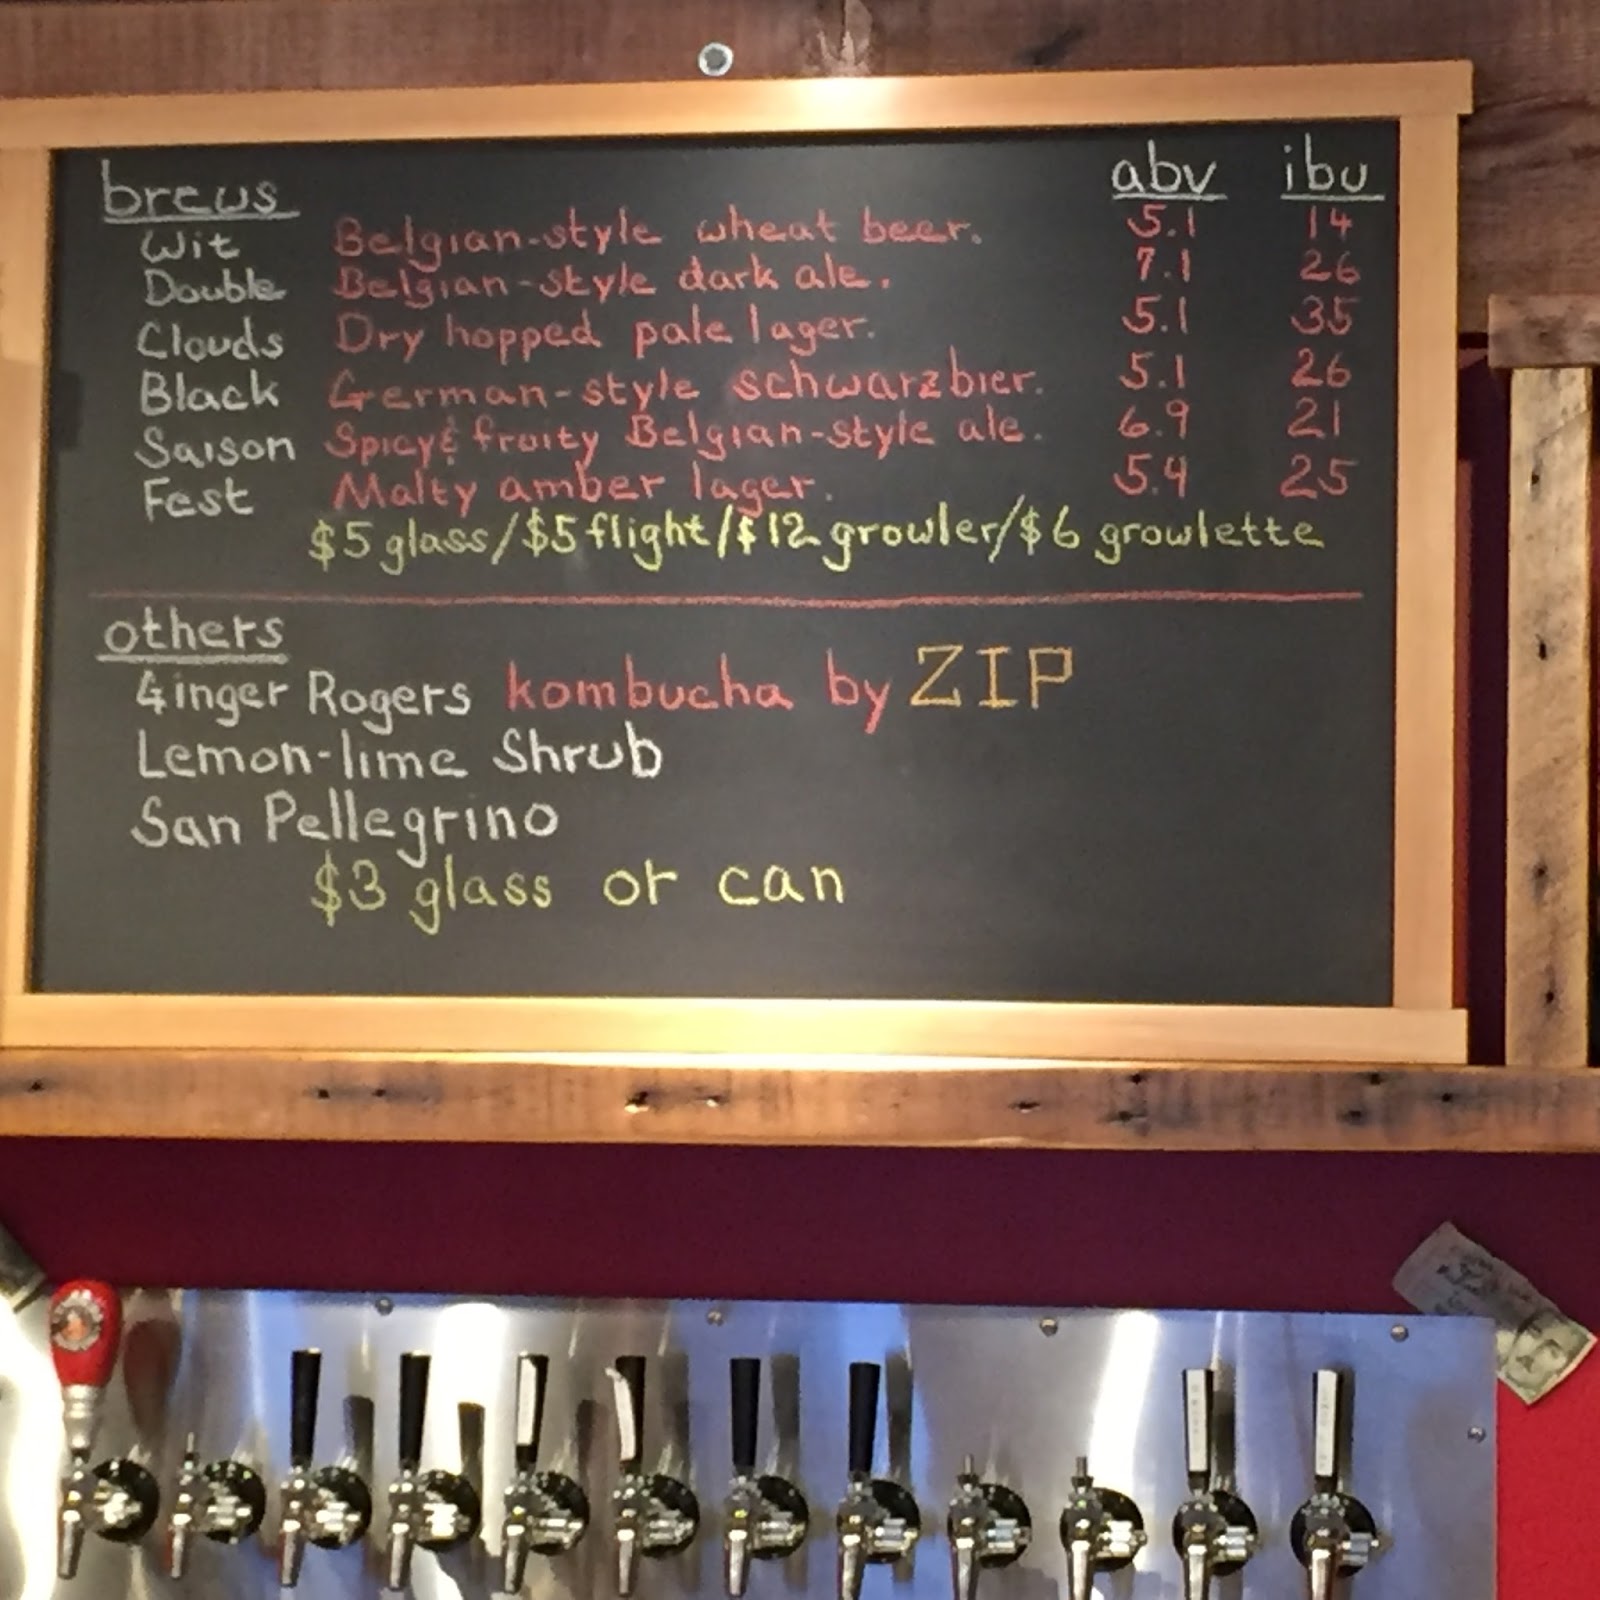 brews abv ibu
Wit Belgian-style wheat beer. 5.1 14
Double Belgian-style dark ale. 7.1 26
Clouds Dry hopped pale lager. 5.1 35
Black German-style schwarzbier. 5.1 26
Saison Spicy & fruity Belgian-style ale. 6.9 21
Fest Malty amber lager. 5.4 25
$5 glass/$5 flight/$12 growler/$6 growlette
others
Ginger Rogers kombucha by ZIP
Lemon-lime Shrub
San Pellegrino
$3 glass or can